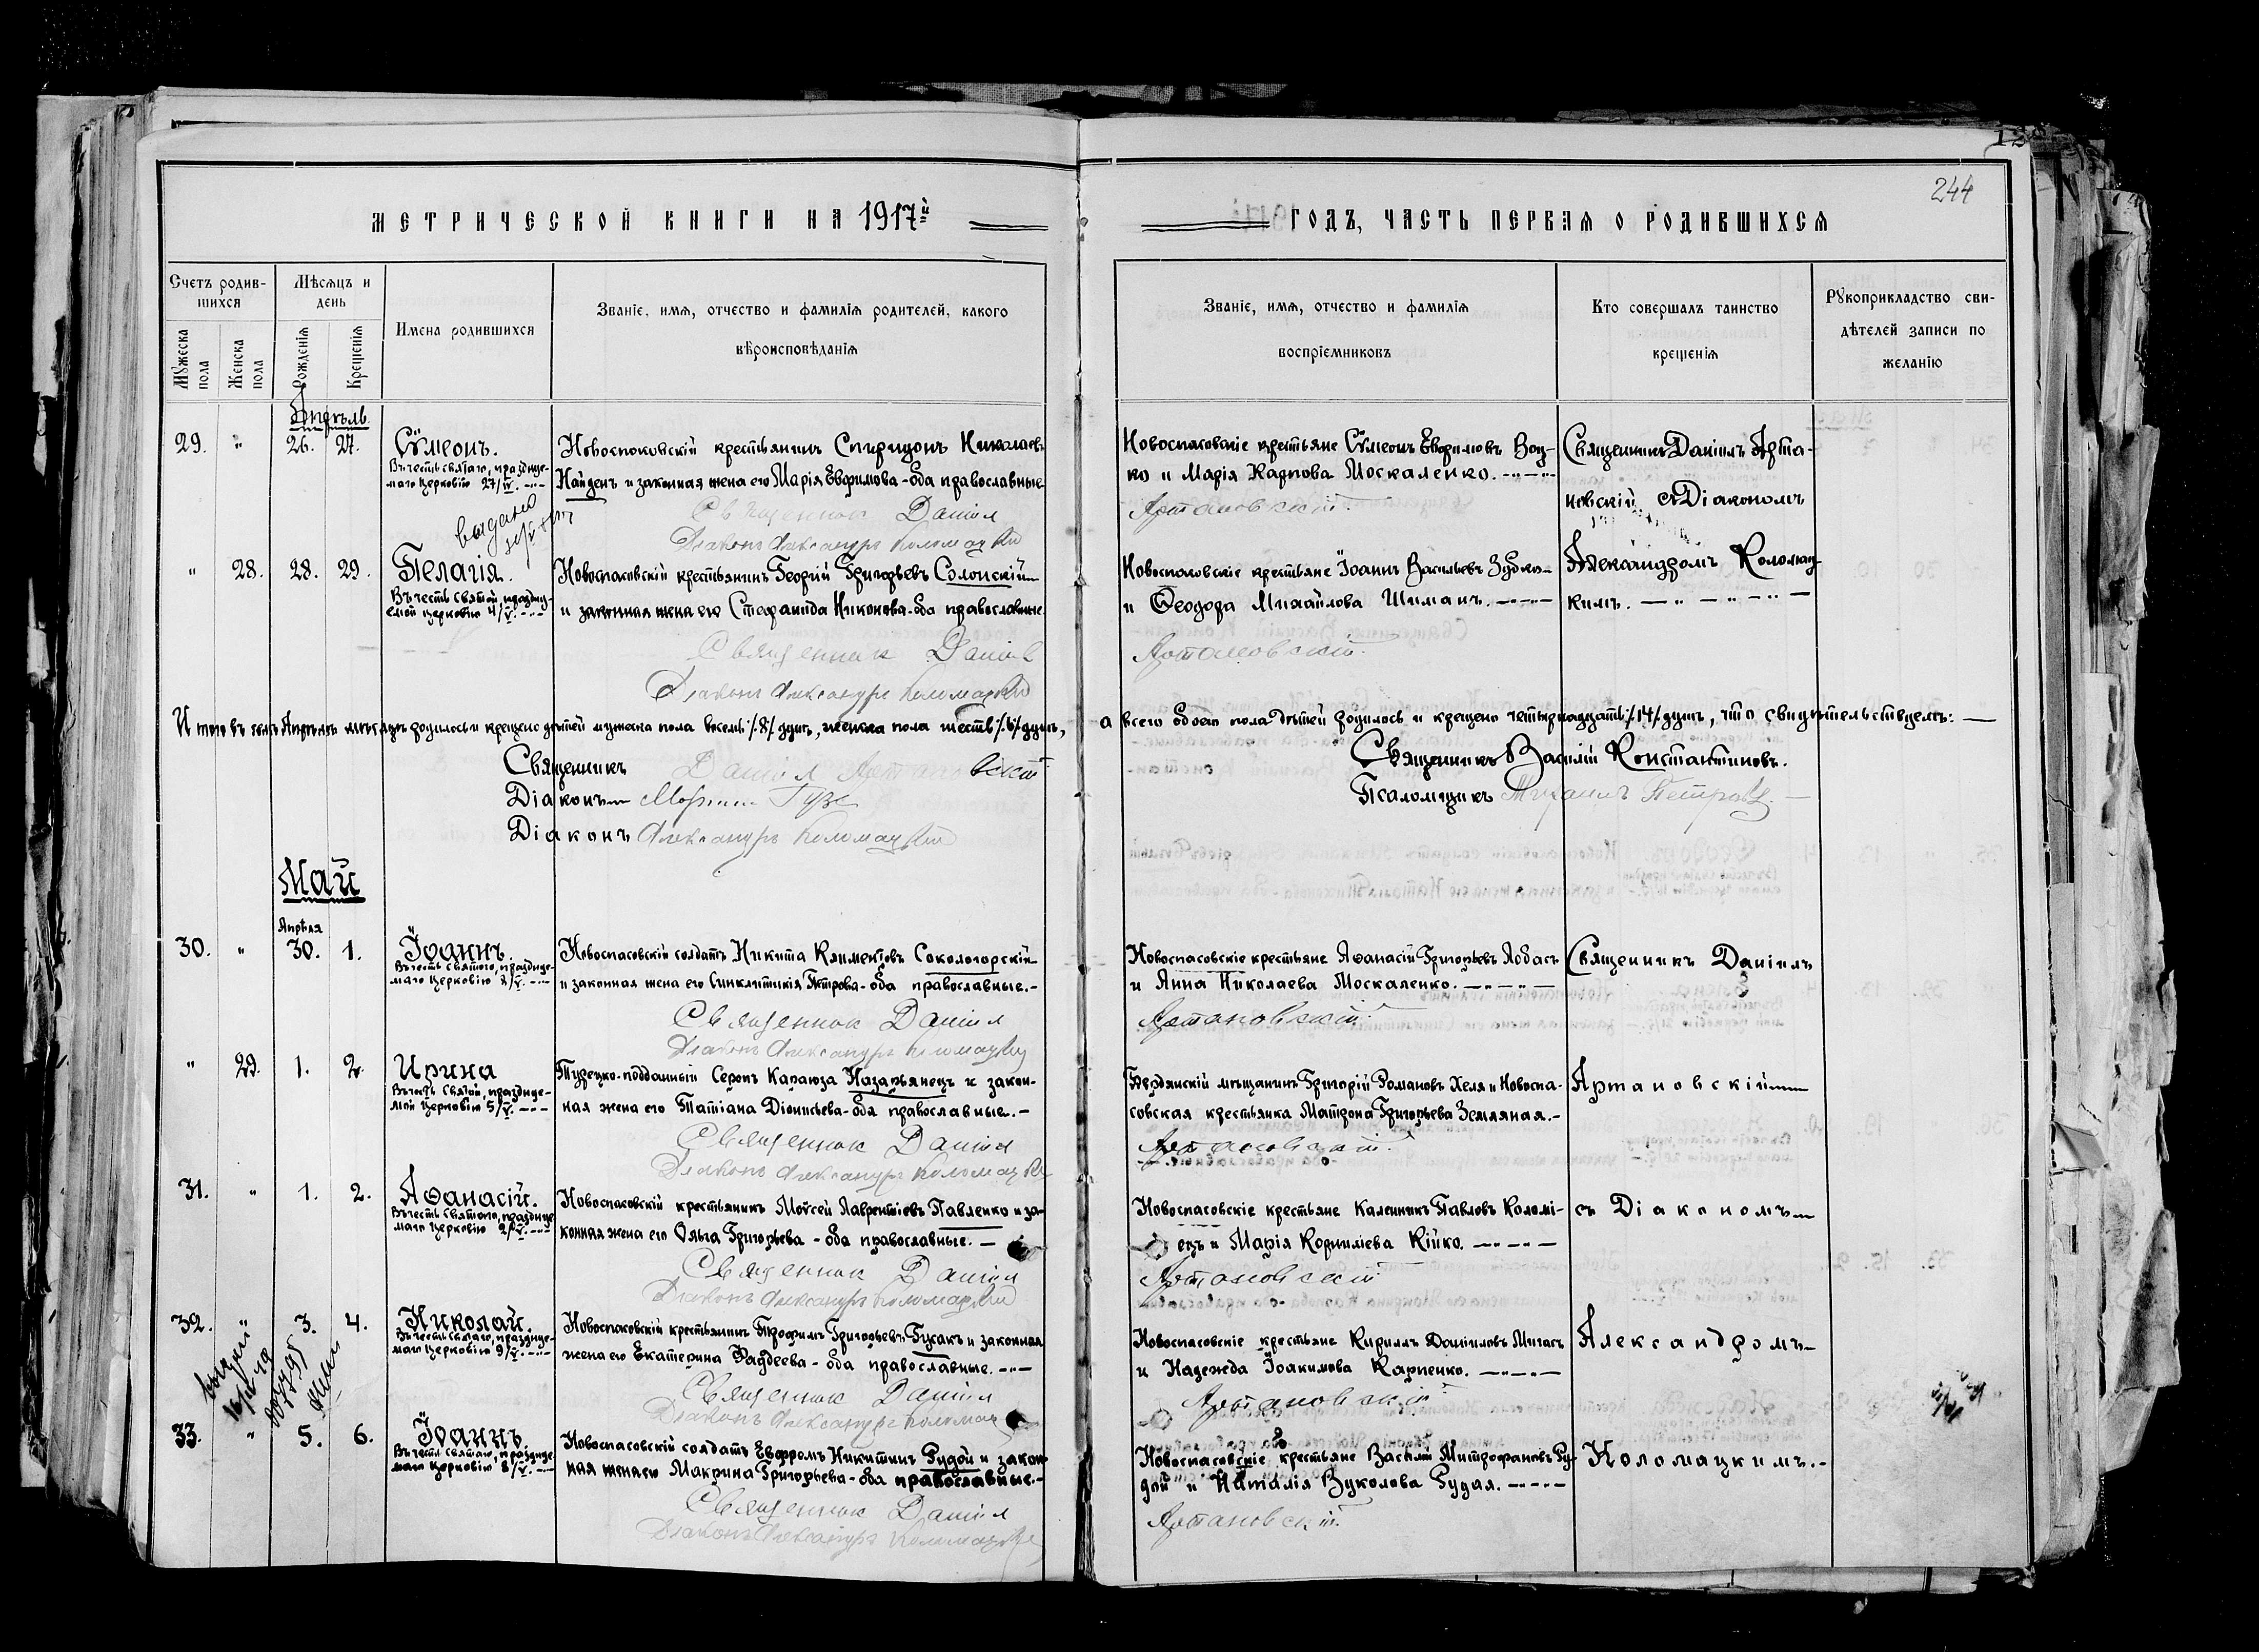 244
МЕТРИЧЕСКОЙ КНИГИ НА 1917й
ГОДЪ, ЧАСТЬ ПЕРВАЯ О РОДИВШИХСЯ
Счетъ родив-
шихся
Мужеска пола
Женска пола
Мѣсяцъ и
день
Рожденія
Крещенія
Имена родившихся
Званіе, имя, отчество и фамилія родителей, какого
вѣроисповѣданія
Званіе, имя, отчество и фамилія
воспріемниковъ
Кто совершалъ таинство
крещенія
Рукоприкладство сви-
дѣтелей записи по
желанію
Апрѣль
29. " 26. 27. Сѵмеонъ.
Въ честь святаго, празднуе-
маго церковію 27/IV.
выдано
Новоспасовскій крестьянинъ Спиридонъ Николаевъ
Найденъ и законная жена его Марія Евфимова - оба православные
Священник Даниил
Диаконъ Александръ Коломацкий
Новоспасовскіе крестьяне Сѵмеонъ Евфимовъ Вод-
ко и Марія Карпова Москаленко.
Артановский.
Священникъ Даніилъ Арта-
новскій съ Діакономъ
" 28. 28. 29. Пелагія.
Въ честь святой, праздну-
емой церковію 4/V.
Новоспасовскій крестьянинъ Георгій Григорьевъ Солонскій
и законная жена его Стефанида Никонова - оба православные.
Священник Даниил
Диаконъ Александръ Коломацкий
Новоспасовскіе крестьяне Іоаннъ Васильевъ Зубко
и Ѳеодора Михайлова Шиманъ.
Артановский.
Александромъ Коломац-
кимъ.
Итого въ семъ Апрѣлѣ мѣсяцѣ родилось и крещено дѣтей мужеска пола восемь /8/ душъ, женска пола шесть /6/ душъ,
а всего обоего пола дѣтей родилось и крещено четырнадцать /14/ душъ, что свидѣтельствуемъ:
Священникъ Даниил Артановский
Діаконъ Мартин Гузь
Діаконъ Александръ Коломацкий
Священникъ Василій Константиновъ.
Псаломщикъ Михаилъ Петровъ.
Май
Апрѣля
30. " 30. 1. Іоаннъ.
Въ честь святаго, празднуе-
маго церковію 8/V.
Новоспасовскій солдатъ Никита Климентовъ Сокологорскій
и законная жена его Синклитикія Петрова - оба православные.
Священник Даниил
Диаконъ Александръ Коломацкий
Новоспасовскіе крестьяне Аѳанасій Григорьевъ Лобасъ
и Анна Николаева Москаленко.
Артановский.
Священникъ Даніилъ
" 29. 1. 2. Ирина
Въ честь святой, празднуе-
мой церковію 5/V.
Турецко-подданный Серопъ Караюза Назарьянецъ и закон-
ная жена его Татіана Діонисьева - оба православные.
Священник Даниил
Диаконъ Александръ Коломацкий
Бердянскій мѣщанинъ Григорій Романовъ Хеля и Новоспа-
совская крестьянка Матрона Григорьева Земляная.
Артановский.
Артановскій
31. " 1. 2. Аѳанасій.
Въ честь святаго, празднуе-
маго церковію 2/V.
Новоспасовскій крестьянинъ Моѵсей Лаврентіевъ Павленко и за-
конная жена его Ольга Григорьева - оба православные.
Священник Даниил
Диаконъ Александръ Коломацкий
Новоспасовскіе крестьяне Каленникъ Павловъ Коломі-
ецъ и Марія Корниліева Кійко.
Артановский
съ Діакономъ
32. " 3. 4. Николай.
Въ честь святаго, празднуе-
маго церковію 9/V.
Новоспасовскій крестьянинъ Трофимъ Григорьевъ Гусакъ и законная
жена его Екатерина Фаддеева - оба православные.
Священник Даниил
Диаконъ Александръ Коломац
Новоспасовскіе крестьяне Кириллъ Даніиловъ Митасъ
и Надежда Іоакимова Карпенко.
Артановский
Александромъ
33. " 5. 6. Іоаннъ
Въ честь святаго, празднуе-
маго церковію 8/V.
Новоспасовскій солдатъ Евфромъ Никитинъ Рудой и закон-
ная жена его Макрина Григорьева - оба православные.
Священник Даниил
Диаконъ Александръ Коломацкий
Новоспасовскіе крестьяне Василій Митрофановъ Ру-
дой и Наталія Вуколова Рудая.
Артановский.
Коломацкимъ.